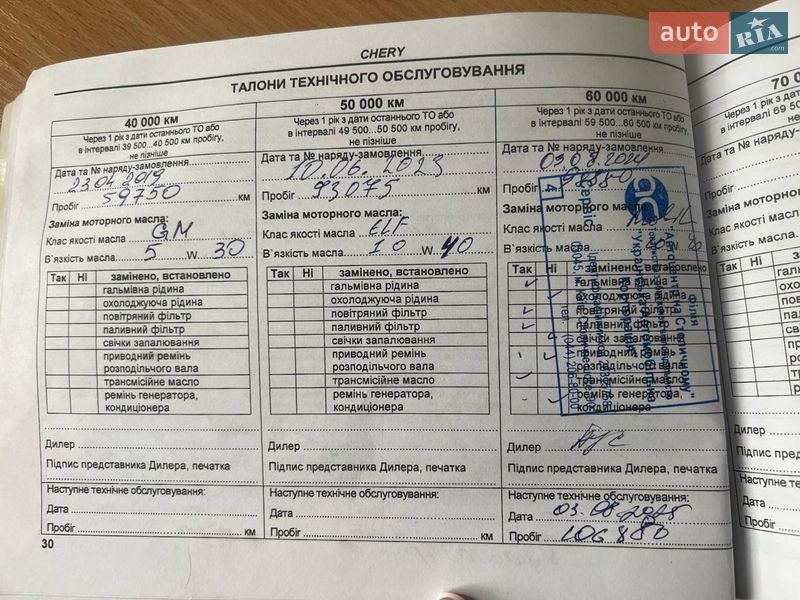 auto RIA.com
CHERY
ТАЛОНИ ТЕХНІЧНОГО ОБСЛУГОВУВАННЯ
40 000 км
Через 1 рік з дати останнього ТО або
в інтервалі 39 500...40 500 км пробігу,
не пізніше
Дата та № наряду-замовлення
23.04.2019
Пробіг 59750 км
Заміна моторного масла:
Клас якості масла GM
В`язкість масла 5 W 30
Так Ні замінено, встановлено
гальмівна рідина
охолоджуюча рідина
повітряний фільтр
паливний фільтр
свічки запалювання
приводний ремінь
розподільчого вала
трансмісійне масло
ремінь генератора,
кондиціонера
Дилер
Підпис представника Дилера, печатка
Наступне технічне обслуговування:
Дата
Пробіг км
30
50 000 км
Через 1 рік з дати останнього ТО або
в інтервалі 49 500...50 500 км пробігу,
не пізніше
Дата та № наряду-замовлення
10.06.2023
Пробіг 93075 км
Заміна моторного масла:
Клас якості масла ELF
В`язкість масла 10 W 40
Так Ні замінено, встановлено
гальмівна рідина
охолоджуюча рідина
повітряний фільтр
паливний фільтр
свічки запалювання
приводний ремінь
розподільчого вала
трансмісійне масло
ремінь генератора,
кондиціонера
Дилер
Підпис представника Дилера, печатка
Наступне технічне обслуговування:
Дата
Пробіг км
60 000 км
Через 1 рік з дати останнього ТО або
в інтервалі 59 500...60 500 км пробігу,
не пізніше
Дата та № наряду-замовлення
03.08.2024
Пробіг
Заміна моторного масла:
Клас якості масла
В`язкість масла
Так Ні замінено, встановлено
гальмівна рідина
охолоджуюча рідина
повітряний фільтр
паливний фільтр
свічки запалювання
приводний ремінь
розподільчого вала
трансмісійне масло
ремінь генератора,
кондиціонера
Дилер
Підпис представника Дилера, печатка
Наступне технічне обслуговування:
Дата 03.08.2025
Пробіг 106880 км
філія
4
70 0
Через 1 рік з дати
в інтервалі 69 5
Дата та № на
Пробіг
Заміна мотор
Клас якості ма
В`язкість масла
Так Ні
Дилер
Підпис пред
Наступне техн
Дата
Пробіг